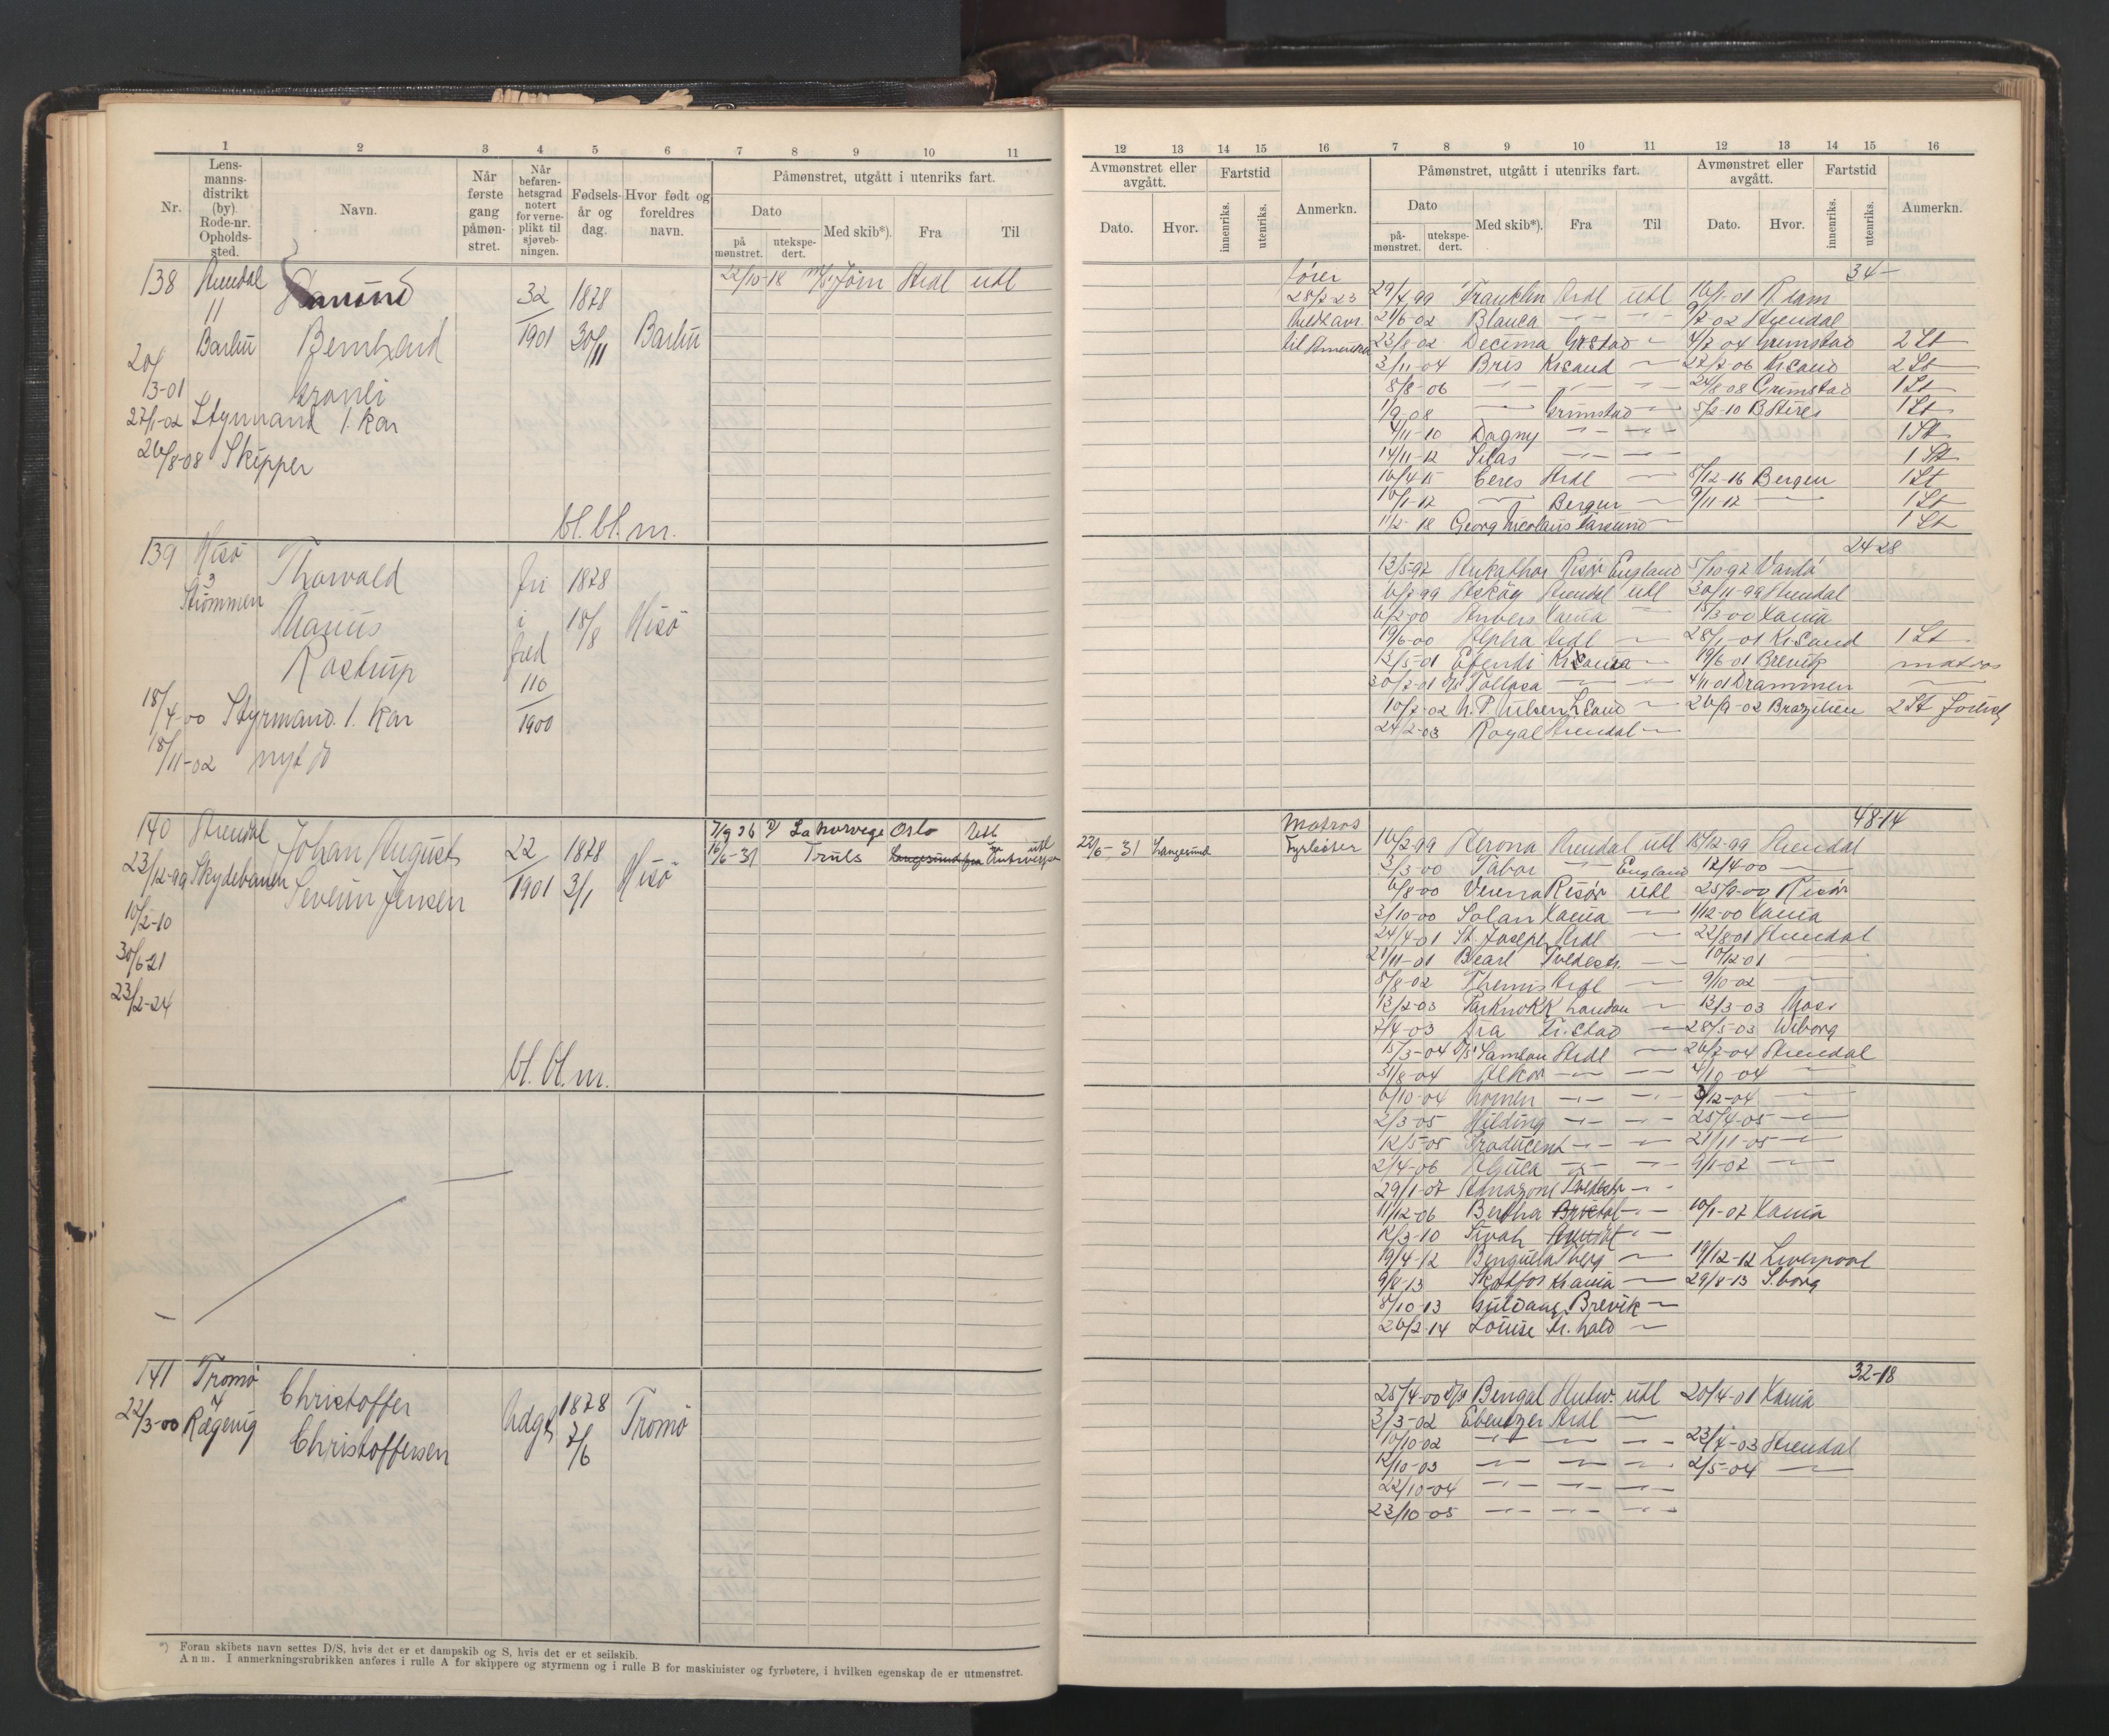 1 2 3 4 5 6 7 8 9 10 11
Nr.
Lens-
manns-
distrikt
(by).
Rode-nr.
Opholds-
sted.
Navn.
Når
første
gang
påmøn-
stret.
Når
befaren-
hetsgrad
notert
for verne-
plikt til
sjøveb-
ningen.
Fødsels-
år og
dag.
Hvor født og
foreldres
navn.
Påmønstret, utgått i utenriks fart.
Dato
på-
mønstret.
utekspe-
dert.
Med skib*).
Fra
Til
138 Arendal 32 1878 22/10-18 Jøin Ardl utl
11
Barbu Bernhard 1901 30/11 Barbu
20/3-01 Gronli
27/1-02 Styrmand 1. kar
26/8-08 Skipper
bl. bl. m.
139 Hisø Thorvald fri 1878
3
Strømmen Marius i 18/8 Hisø
Rostrup fred
110
18/4-00 Styrmand 1. kar 1900
18/11-02 nyt do
140 Arendal Johan August 22 1878 7/9 26 La Norvege Oslo Utl
23/12-99 Skydebanen Severin Jensen 1901 3/1 Hisø 16/6-31 Truls Langesund fra Antwerpen utl
10/2-10
30/6-21
23/2-24
bl. bl. m.
141 Tromø Christoffer Udygt 1878 Tromø
22/3-00 Rægevig Christoffersen 7/6
*) Foran skibets navn settes D/S, hvis det er et dampskib og S, hvis det er et seilskib.
Anm. I anmerkningsrubrikken anføres i rulle A for skippere og styrmenn og i rulle B for maskinister og fyrbøtere, i hvilken egenskap de er utmønstret.
12 13 14 15 16 7 8 9 10 11 12 13 14 15 16
Avmønstret eller
avgått.
Dato.
Hvor.
Fartstid
innenriks.
utenriks.
Anmerkn.
Påmønstret, utgått i utenriks fart.
Dato
på-
mønstret.
utekspe-
dert.
Med skib*).
Fra
Til
Avmønstret eller
avgått.
Dato.
Hvor.
Fartstid
innenriks.
utenriks.
Anmerkn.
fører 34 -
28/2-23 29/4 99 Franklin Ardl utl 16/1-01 R.dam
21/6-02 Blanca 9/7-02 Arendal
til Amerika 23/8-02 Decima Grstad 4/7 04 Grimstad 2 St
3/11-04 Bris Krsand 27/7-06 Krsand 2 St
8/8-06 24/8 08 Grimstad 1 St
1/9-08 Grimstad 5/2-10 B Aires 1 St
4/11-10 Dagny 1 St
14/11-12 Silas 1 St
16/4-15 Ceres Ardl 8/12-16 Bergen 1 St
16/1-17 Bergen 9/11-17 1 St
11/2-18 Georg Nicolaus Farsund 1 St
24 28
13/5-97 Risør England 5/10-97 Vardø
6/7-99 Askøy Arendal utl 30/11-99 Arendal
6/2-00 Anvers Xania 15/3-00 Xania
19/6-00 Alpha Ardl 28/1-01 Krsand 1 St
13/5-01 Efendi Krsania 19/6-01 Brevik matros
30/7-01 D/S Tolosa 4/11 01 Drammen
10/7-02 26/9-02 Brazilien 2 St
24/2-03 Royal Arendal
48-14
Matros
22/6-31 Langesund Fyrbøter 16/2-99 Verona Arendal utl 15/12-99 Arendal
3/3-00 Tabor England 17/4-00
6/8-00 Verena Risør utl 25/9-00 Risør
3/10-00 Solan Xania 1/12-00 Xania
24/4-01 St. Joseph Ardl 22/8-01 Arendal
21/11-01 Pearl Tvedestr. 10/12-01
8/8-02 Themis Ardl 9/10-02
13/2-03 London 13/3-03 Moss
7/4-03 Fr.stad 28/5-03 Wiborg
15/3-04 D/S Samson Ardl 26/7-04 Arendal
31/8-04 Alkor 4/10-04
6/10-04 3/12-04
2/3-05 Hilding 25/4-05
12/5-05 Producent 21/11-05
2/4-06 9/1-07
29/1-07 Amazone Tvedestr
11/12-06 Bertha Bristol 10/1-07 Xania
12/3-10 Sivah Arendal
19/4-12 Benguela Tberg 19/12-12 Liverpool
9/8-13 Skotfos Krania 29/8-13 S.borg
8/10-13 Guldaas Brevik
26/2-14 Louise Fr. hald
32-18
25/4-00 D/S Bengal Antw. utl 20/4-01 Xania
3/3-02 Ebenezer Ardl
10/10-02 23/7-03 Arendal
12/10-03 2/5-04
22/10-04
23/10-05